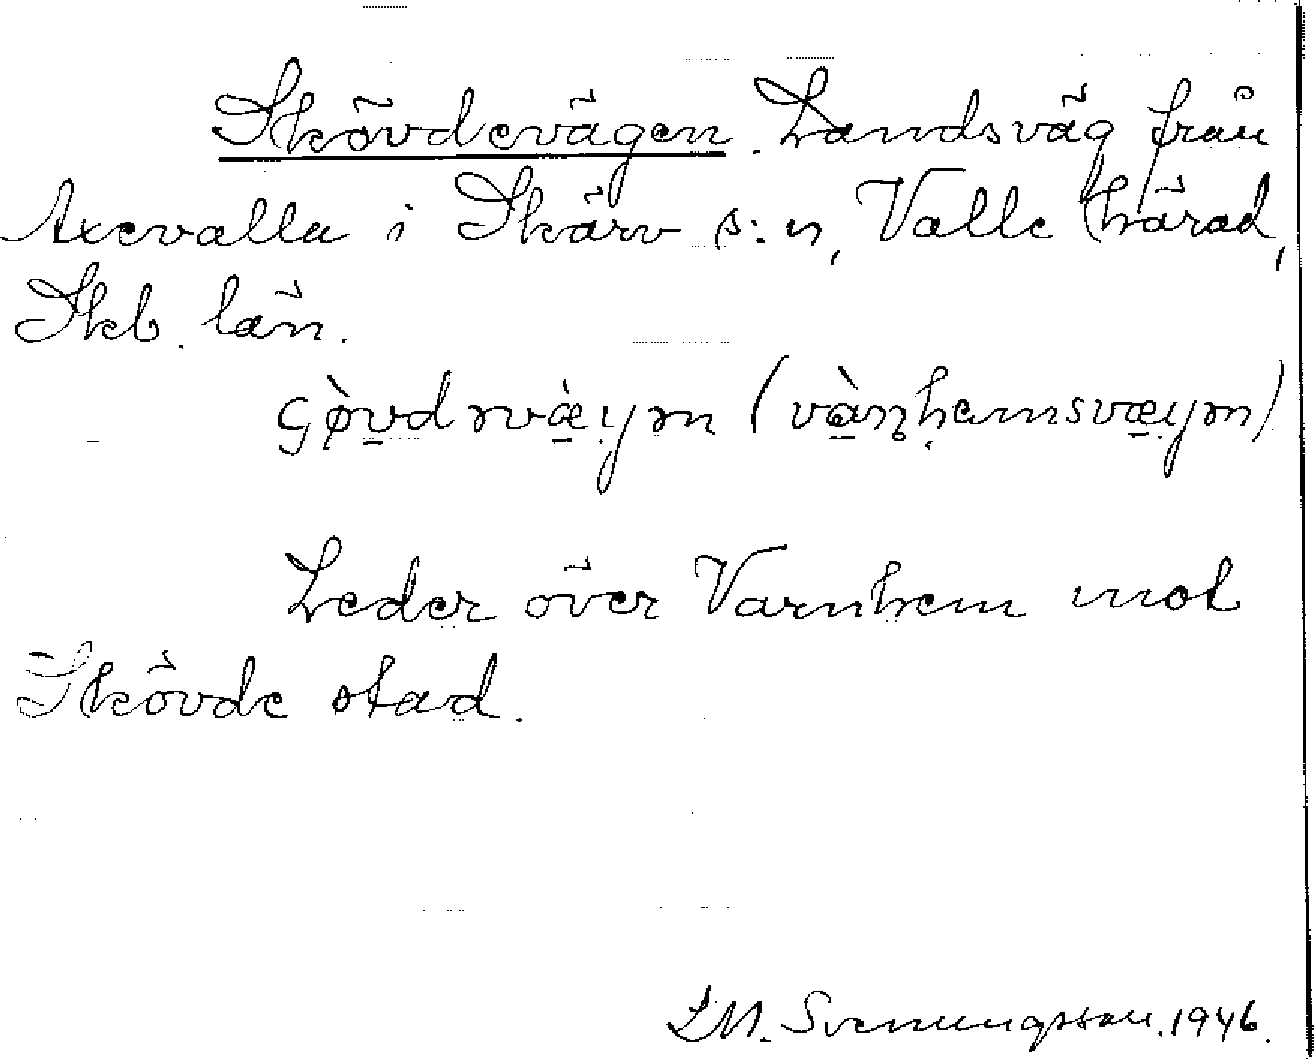 Skövdevägen. Landsväg från
Axevalla i Skärv s:n, Valle härad,
Skb. län.
Leder över Varnhem mot
Skövde stad.
L M. Svenungsson. 1946.